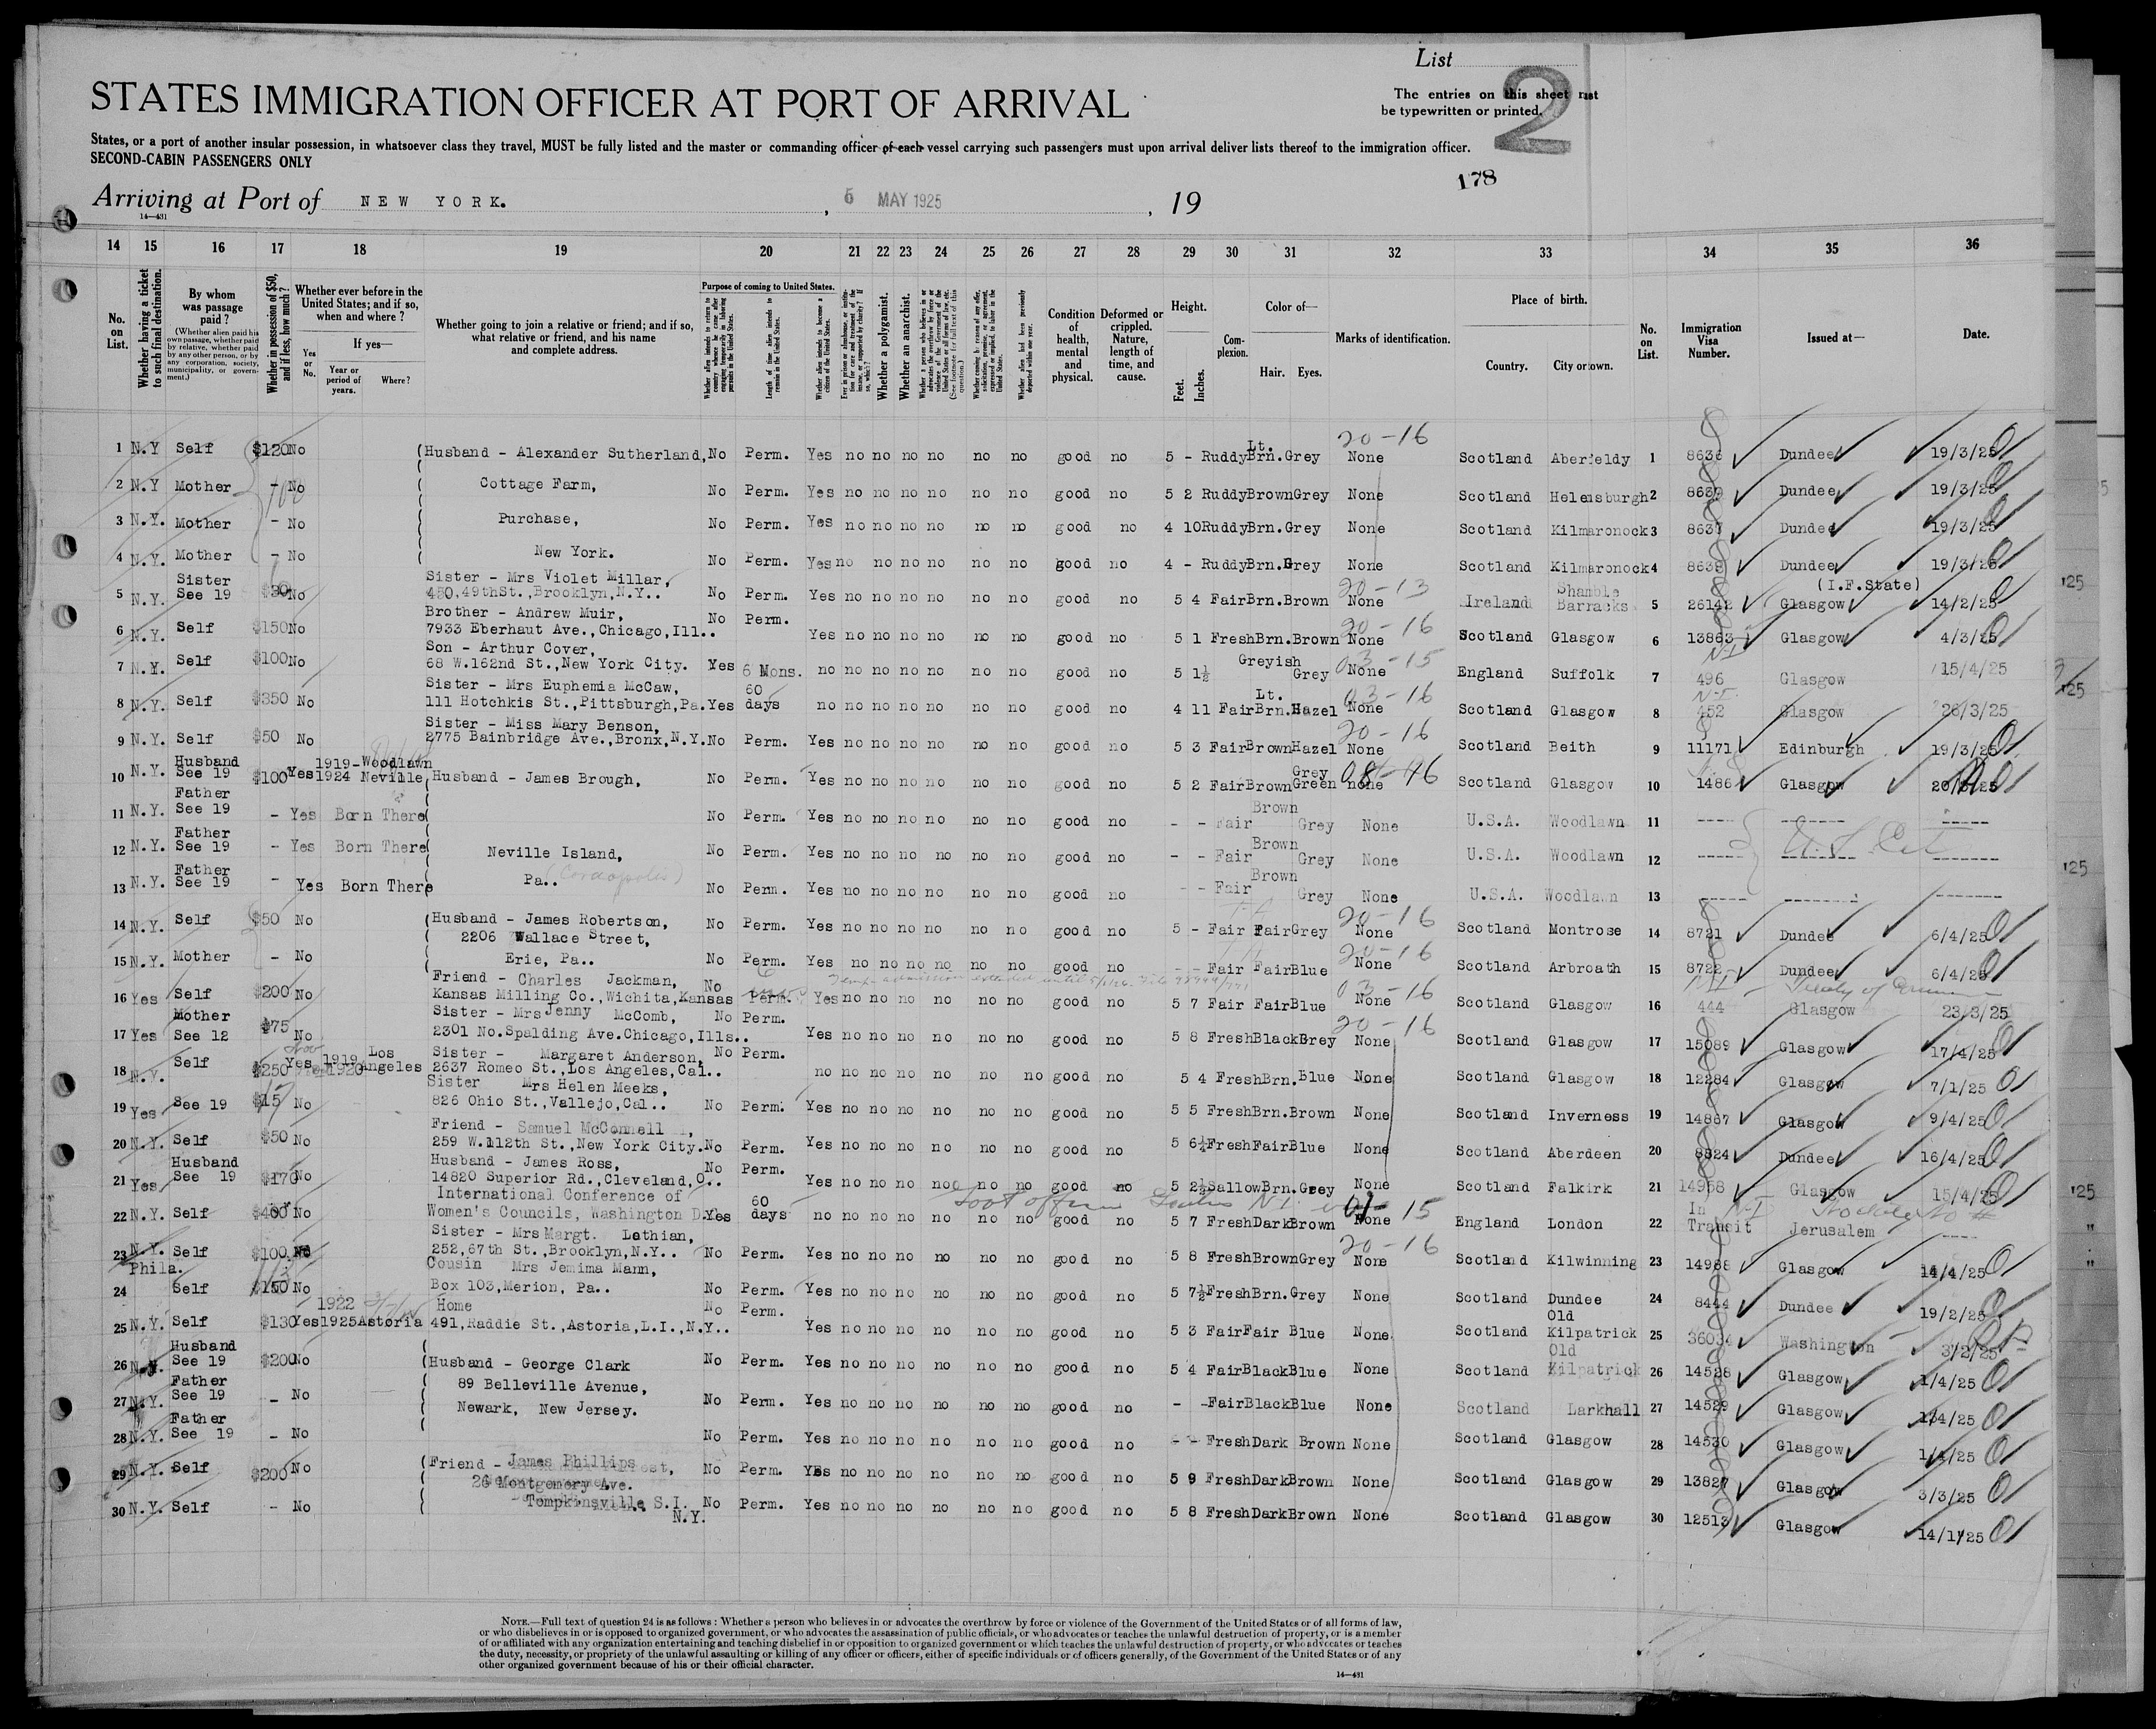 List
2
The entries on this sheet must
be typewritten or printed.
STATES IMMIGRATION OFFICER AT PORT OF ARRIVAL
States, or a port of another insular possession, in whatsoever class they travel, MUST be fully listed and the master or commanding officer of each vessel carrying such passengers must upon arrival deliver lists thereof to the immigration officer.
SECOND-CABIN PASSENGERS ONLY
178
Arriving at Port of NEW YORK. , 5 MAY 1925 , 19
14—431
14 15 16 17 18 19 20 21 22 23 24 25 26 27 28 29 30 31 32 33 34 35 36
No. on List.
Whether having a ticket to such final destination.
By whom was passage paid?
(Whether alien paid his own passage, whether paid by relative, whether paid by any other person, or by any corporation, society, municipality, or government.)
Whether in possession of $50, and if less, how much?
Whether ever before in the United States; and if so, when and where?
Yes or No.
If yes—
Year or period of years.
Where?
Whether going to join a relative or friend; and if so, what relative or friend, and his name and complete address.
Purpose of coming to United States.
Length of time alien intends to remain in the United States.
Whether alien intends to become a citizen of the United States.
Whether a polygamist.
Whether an anarchist.
Condition of health, mental and physical.
Deformed or crippled. Nature, length of time, and cause.
Height.
Feet.
Inches.
Complexion.
Color of—
Hair. Eyes.
Marks of identification.
Place of birth.
Country. City or town.
No. on List.
Immigration Visa Number.
Issued at—
Date.
1 N.Y Self $120 No (Husband - Alexander Sutherland, No Perm. Yes no no no no no no good no 5 - Ruddy Lt. Brn. Grey 20-16 None Scotland Aberfeldy 1 8636 Dundee 19/3/25
2 N.Y Mother - No Cottage Farm, No Perm. Yes no no no no no no good no 5 2 Ruddy Brown Grey None Scotland Helensburgh 2 Dundee 19/3/25
3 N.Y. Mother - No Purchase, No Perm. Yes no no no no no no good no 4 10 Ruddy Brn. Grey None Scotland Kilmaronock 3 8637 Dundee 19/3/25
4 N.Y. Mother - No New York. No Perm. Yes no no no no no no good no 4 - Ruddy Brn. Grey None Scotland Kilmaronock 4 Dundee 19/3/25
5 N.Y. Sister See 19 No Sister - Mrs Violet Millar, 450,49thSt.,Brooklyn,N.Y.. No Perm. Yes no no no no no no good no 5 4 Fair Brn. Brown 20-13 None Ireland Shamble Barracks 5 26142 Glasgow (I.F.State) 14/2/25
6 N.Y. Self $150 No Brother - Andrew Muir, 7933 Eberhaut Ave.,Chicago,Ill.. No Perm. Yes no no no no no no good no 5 1 Fresh Brn. Brown 20-16 None Scotland Glasgow 6 13863 Glasgow 4/3/25
7 N.Y. Self $100 No Son - Arthur Cover, 68 W.162nd St.,New York City. Yes 6 Mons. no no no no no no no good no 5 1½ Greyish Grey 03-15 None England Suffolk 7 N-I 496 Glasgow 15/4/25
8 N.Y. Self $350 No Sister - Mrs Euphemia McCaw, 111 Hotchkis St.,Pittsburgh,Pa. Yes 60 days no no no no no no no good no 4 11 Fair Lt. Brn. Hazel 03-16 None Scotland Glasgow 8 N-I 452 Glasgow 26/3/25
9 N.Y. Self $50 No Sister - Miss Mary Benson, 2775 Bainbridge Ave.,Bronx,N.Y. No Perm. Yes no no no no no no good no 5 3 Fair Brown Hazel 20-16 None Scotland Beith 9 11171 Edinburgh 19/3/25
10 N.Y. Husband See 19 $100 Yes 1919-1924 Woodlawn Neville (Husband - James Brough, No Perm. Yes no no no no no no good no 5 2 Fair Brown Grey Green none Scotland Glasgow 10 1486 Glasgow
11 N.Y. Father See 19 - Yes Born There No Perm. Yes no no no no no no good no - - Fair Brown Grey None U.S.A. Woodlawn 11
12 N.Y. Father See 19 - Yes Born There Neville Island, No Perm. Yes no no no no no no good no - - Fair Brown Grey None U.S.A. Woodlawn 12 U.S. Cit
13 N.Y. Father See 19 - Yes Born There Pa.. (Coraopolis) No Perm. Yes no no no no no no good no - - Fair Brown Grey None U.S.A. Woodlawn 13
14 N.Y. Self $50 No (Husband - James Robertson, 2206 Wallace Street, No Perm. Yes no no no no no no good no 5 - Fair Fair Grey 20-16 None Scotland Montrose 14 8721 Dundee 6/4/25
15 N.Y. Mother - No Erie, Pa.. No Perm. Yes no no no no no no good no - - Fair Fair Blue 20-16 None Scotland Arbroath 15 8722 Dundee 6/4/25
16 Yes Self $200 No Friend - Charles Jackman, Kansas Milling Co.,Wichita,Kansas No Perm. Yes no no no no no no good no 5 7 Fair Fair Blue 03-16 None Scotland Glasgow 16 N-I 444 Glasgow 23/3/25
17 Yes Mother See 12 $75 No Sister - Mrs Jenny McComb, 2301 No.Spalding Ave.Chicago,Ills.. No Perm. Yes no no no no no no good no 5 8 Fresh Black Grey 20-16 None Scotland Glasgow 17 15089 Glasgow 17/4/25
18 N.Y. Self $250 Yes 1919 1920 Los Angeles Sister - Margaret Anderson, 2637 Romeo St.,Los Angeles,Cal.. No Perm. no no no no no no no good no 5 4 Fresh Brn. Blue None Scotland Glasgow 18 12284 Glasgow 7/1/25
19 Yes See 19 $15 No Sister Mrs Helen Meeks, 826 Ohio St.,Vallejo,Cal.. No Perm. Yes no no no no no no good no 5 5 Fresh Brn. Brown None Scotland Inverness 19 14867 Glasgow 9/4/25
20 N.Y. Self $50 No Friend - Samuel McConnell, 259 W.112th St.,New York City. No Perm. Yes no no no no no no good no 5 6½ Fresh Fair Blue None Scotland Aberdeen 20 8824 Dundee 16/4/25
21 Yes Husband See 19 $170 No Husband - James Ross, 14820 Superior Rd.,Cleveland,O.. No Perm. Yes no no no no no no good no 5 2½ Sallow Brn. Grey None Scotland Falkirk 21 14958 Glasgow 15/4/25
22 N.Y. Self $400 No International Conference of Women's Councils, Washington D.C. Yes 60 days no no no no no no no good no 5 7 Fresh Dark Brown None England London 22 In Transit Jerusalem
23 N.Y. Self $100 No Sister - Mrs Margt. Lothian, 252,67th St.,Brooklyn,N.Y.. No Perm. Yes no no no no no no good no 5 8 Fresh Brown Grey 20-16 None Scotland Kilwinning 23 14988 Glasgow 14/4/25
24 Phila. Self $150 No Cousin Mrs Jemima Mann, Box 103,Merion, Pa.. No Perm. Yes no no no no no no good no 5 7½ Fresh Brn. Grey None Scotland Dundee 24 8444 Dundee 19/2/25
25 N.Y. Self $130 Yes 1922 1925 Astoria Home 491,Raddie St.,Astoria,L.I.,N.Y.. No Perm. Yes no no no no no no good no 5 3 Fair Fair Blue None Scotland Old Kilpatrick 25 36034 Washington 3/2/25
26 N.Y. Husband See 19 $200 No (Husband - George Clark No Perm. Yes no no no no no no good no 5 4 Fair Black Blue None Scotland Old Kilpatrick 26 14528 Glasgow 1/4/25
27 N.Y. Father See 19 - No 89 Belleville Avenue, Newark, New Jersey. No Perm. Yes no no no no no no good no - - Fair Black Blue None Scotland Larkhall 27 14529 Glasgow 1/4/25
28 N.Y. Father See 19 - No No Perm. Yes no no no no no no good no - - Fresh Dark Brown None Scotland Glasgow 28 14530 Glasgow 1/4/25
29 N.Y. Self $200 No (Friend - James Phillips 26 Montgomery Ave. No Perm. Yes no no no no no no good no 5 9 Fresh Dark Brown None Scotland Glasgow 29 13827 Glasgow 3/3/25
30 N.Y. Self - No Tompkinsville S.I. N.Y. No Perm. Yes no no no no no no good no 5 8 Fresh Dark Brown None Scotland Glasgow 30 12513 Glasgow 14/1/25
NOTE.—Full text of question 24 is as follows: Whether a person who believes in or advocates the overthrow by force or violence of the Government of the United States or of all forms of law,
or who disbelieves in or is opposed to organized government, or who advocates the assassination of public officials, or who advocates or teaches the unlawful destruction of property, or is a member
of or affiliated with any organization entertaining and teaching disbelief in or opposition to organized government or which teaches the unlawful destruction of property, or who advocates or teaches
the duty, necessity, or propriety of the unlawful assaulting or killing of any officer or officers, either of specific individuals or of officers generally, of the Government of the United States or of any
other organized government because of his or their official character.
14—431